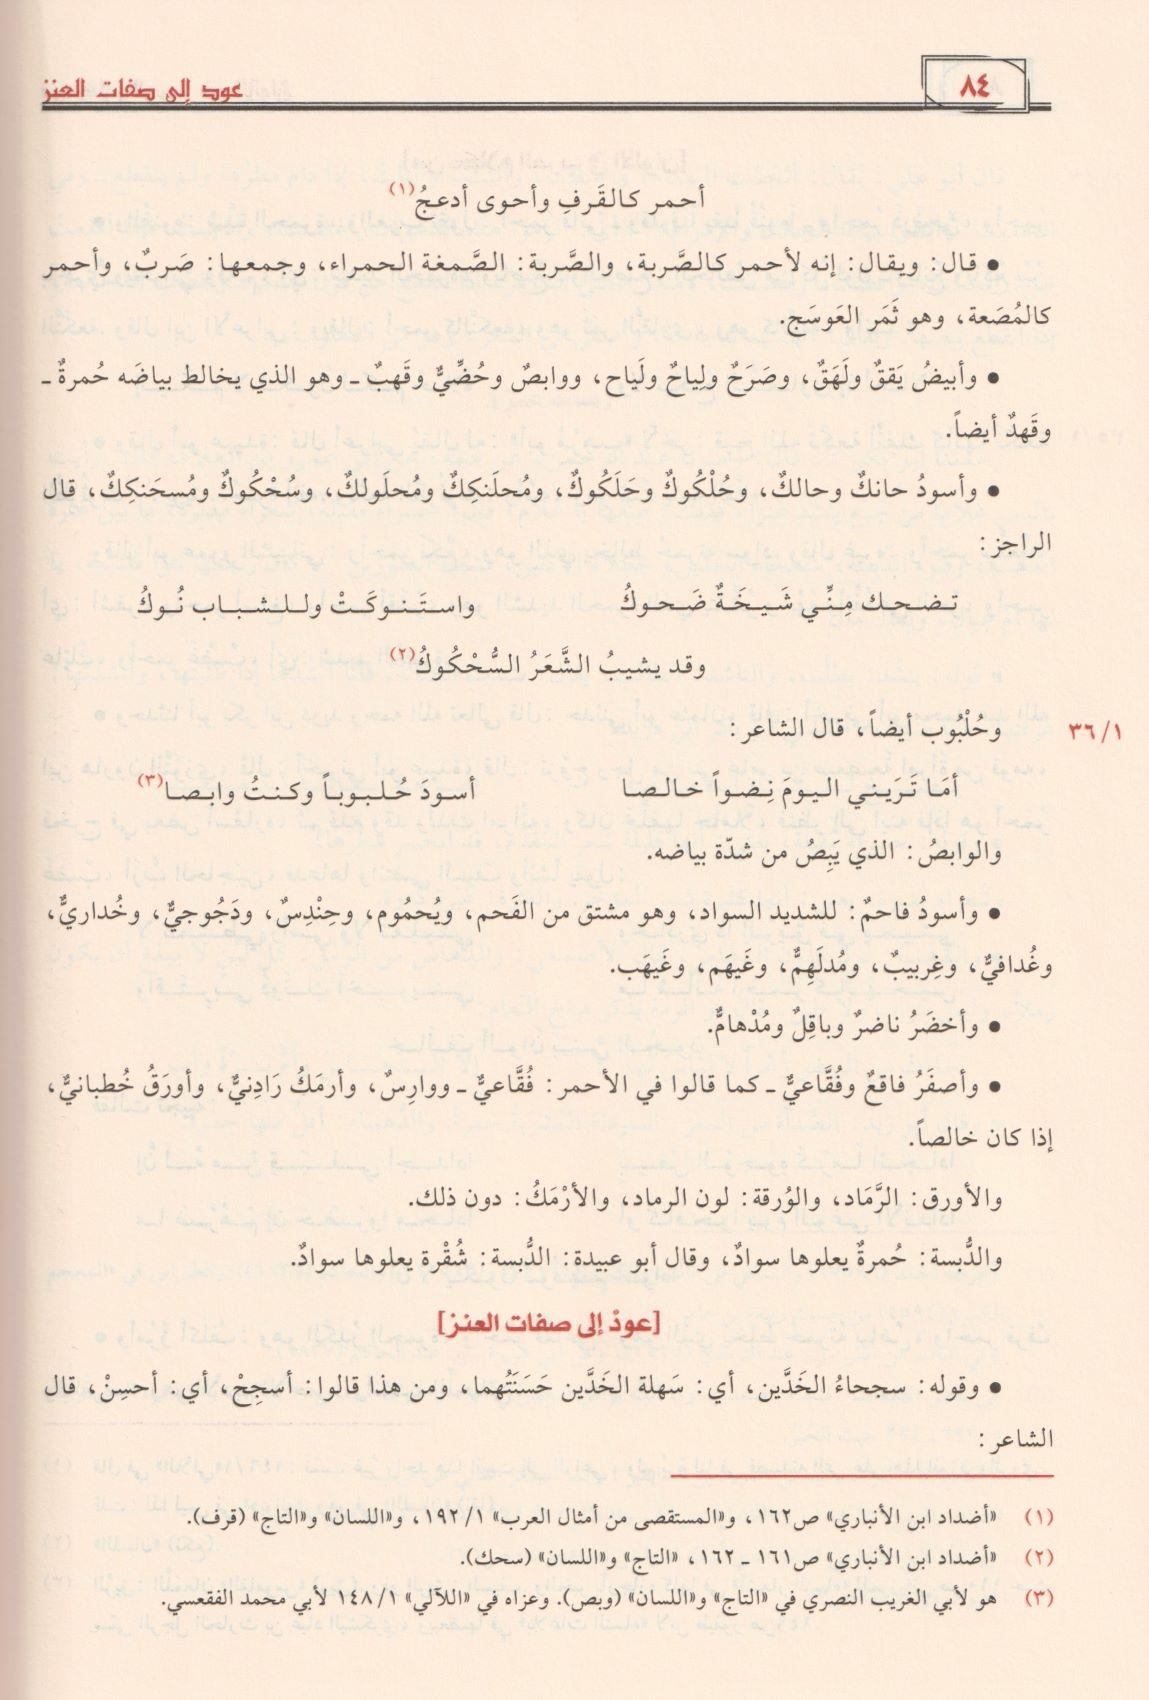 ٨٤
عود إلى صفات العنز
أحمر كالقَرفِ وأحوى أدعجُ(١)
• قال: ويقال: إنه لأحمر كالصَّربة، والصَّربة: الصَّمغة الحمراء، وجمعها: صَربٌ، وأحمر
كالمُصَعة، وهو ثَمَر العَوسَج.
• وأبيضُ يَققٌ ولَهَقٌ، وصَرَحٌ ولِياحٌ ولَياح، ووابصٌ وحُضِّيٌّ وقَهبٌ ـ وهو الذي يخالط بياضَه حُمرةٌ ـ
وقَهدٌ أيضاً.
• وأسودُ حانكٌ وحالكٌ، وحُلْكُوكٌ وحَلَكُوكٌ، ومُحلَنكِكٌ ومُحلَولكٌ، وسُحْكُوكٌ ومُسحَنكِكٌ، قال
الراجز:
تـضـحـك مِـنِّـي شَـيـخَـةٌ ضَـحـوكُ واستَـنـوكَـتْ ولـلـشـبـاب نُـوكُ
وقد يشيبُ الشَّعَرُ السُّحْكُوكُ(٢)
١/ ٣٦
وحُلْبُوب أيضاً، قال الشاعر:
أمَـا تَـرَيـنـي الـيـومَ نِـضـواً خـالـصـا أسـودَ حُـلـبـوبـاً وكـنـتُ وابـصـا(٣)
والوابصُ: الذي يَبِصُ من شدّة بياضه.
• وأسودُ فاحمٌ: للشديد السواد، وهو مشتق من الفَحم، ويُحمُوم، وحِنْدِسٌ، ودَجُوجيٌّ، وخُداريٌّ،
وغُدافيٌّ، وغِربيبٌ، ومُدلَهِمٌّ، وغَيهَم، وغَيهَب.
• وأخضَرُ ناضرٌ وباقِلٌ ومُدْهامٌّ.
• وأصفَرُ فاقعٌ وفُقَّاعيٌّ ـ كما قالوا في الأحمر: فُقَّاعيٌّ ـ ووارِسٌ، وأرمَكُ رَادِنيٌّ، وأورَقُ خُطبانيٌّ،
إذا كان خالصاً.
والأورق: الرَّمَاد، والوُرقة: لون الرماد، والأرْمَكُ: دون ذلك.
والدُّبسة: حُمرةٌ يعلوها سوادٌ، وقال أبو عبيدة: الدُّبسة: شُقْرة يعلوها سوادٌ.
[عودْ إلى صفات العنز]
• وقوله: سجحاءُ الخَدَّين، أي: سَهلة الخَدَّين حَسَنَتُهما، ومن هذا قالوا: أسجِحْ، أي: أحسِنْ، قال
الشاعر:
(١) «أضداد ابن الأنباري» ص١٦٢، و«المستقصى من أمثال العرب» ١/ ١٩٢، و«اللسان» و«التاج» (قرف).
(٢) «أضداد ابن الأنباري» ص١٦١ ـ ١٦٢، «التاج» و«اللسان» (سحك).
(٣) هو لأبي الغريب النصري في «التاج» و«اللسان» (وبص). وعزاه في «اللآلي» ١/ ١٤٨ لأبي محمد الفقعسي.